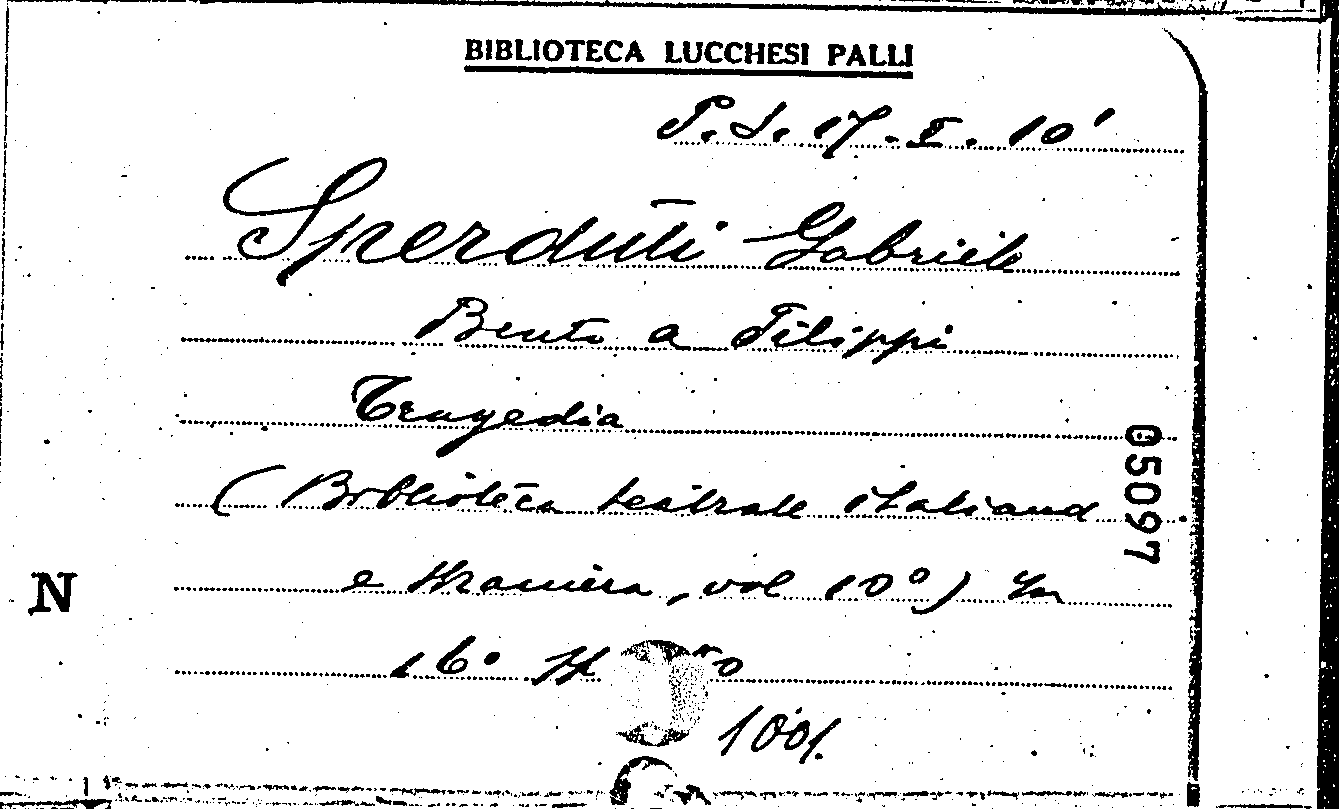 BIBLIOTECA LUCCHESI PALLI
P. S. 17 - I. 10'
Sperduti Gabriele
Bruto a Filippi
Tragedia
(Biblioteca teatrale italiana
e straniera, vol 10º) In
16º
05097
N